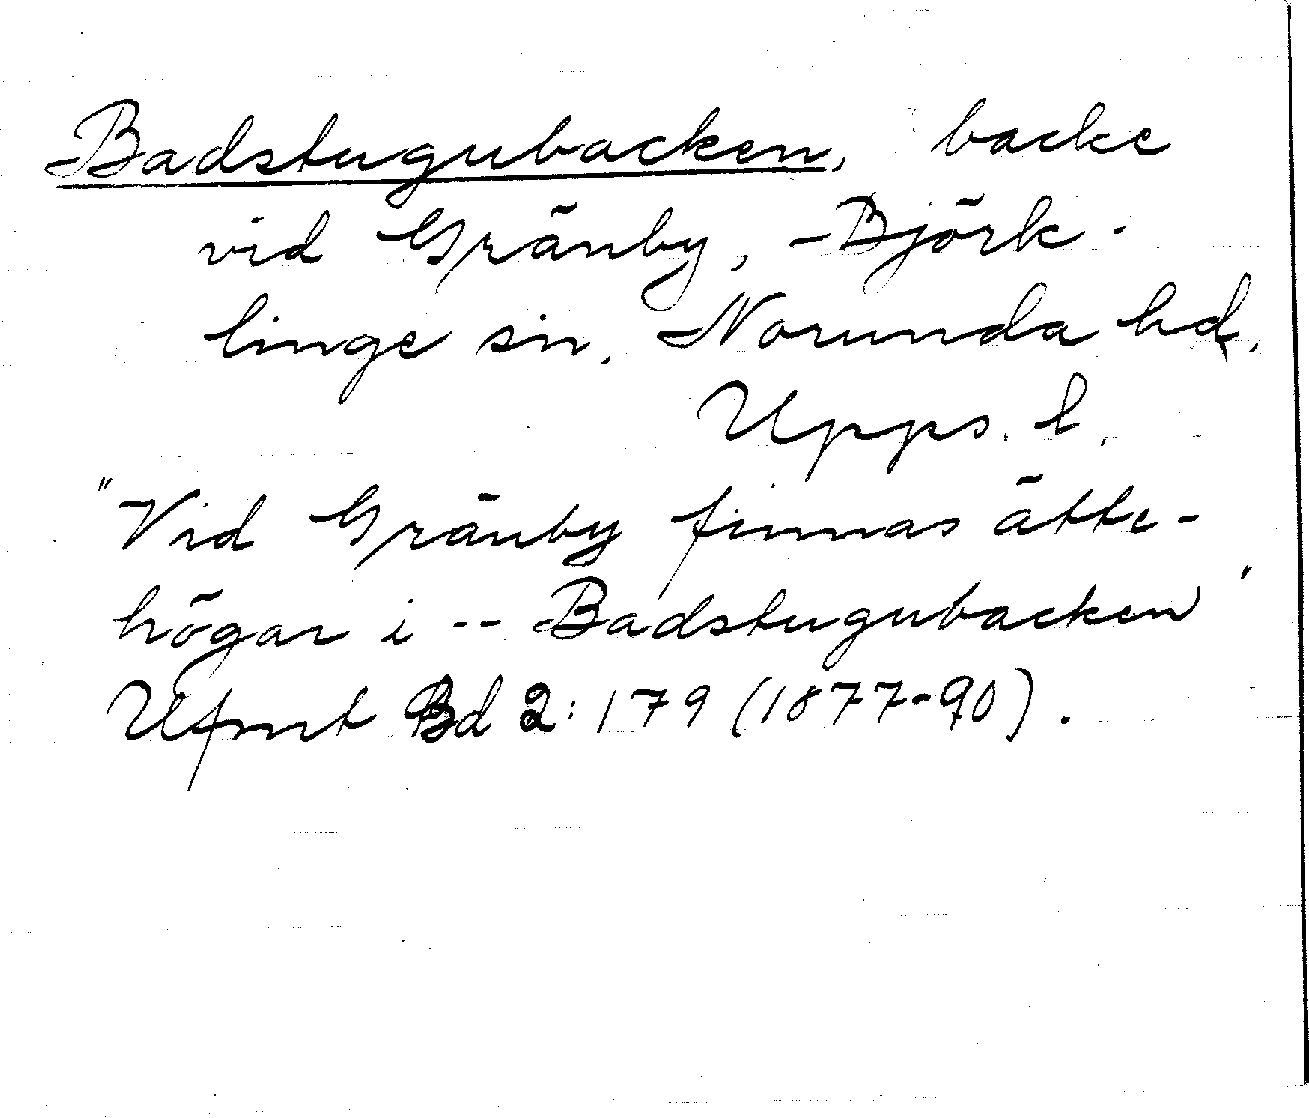 Badstugubacken, backe
vid Gränby, Björk-
linge sn. Norunda hd,
Upps. l.
"Vid Gränby finnas ätte-
högar i -- Badstugubacken"
Ufmt Bd 2:179 (1877-90).